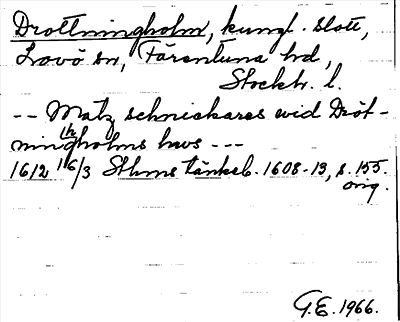 Drottningholm, kungl. slott,
Lovö sn, Färentuna hd,
Stockh. l.
-- Matz schnickares wid Dröt-
ningholms hws ---
1612 16/3 Sthms tänkeb. 1608-13, s. 155.
orig.
G.E. 1966.